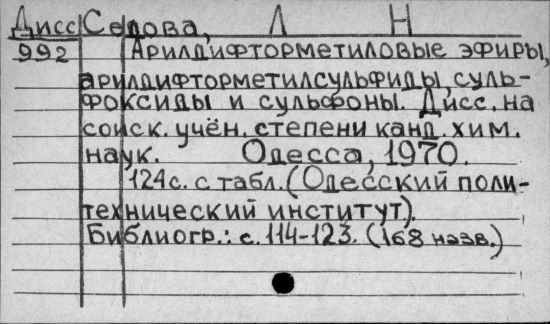 Дисс Седова, Л Н
992 Арилдифторметиловые эфиры,
арилдифторметилсульфиды, суль-
фоксиды и сульфоны. Дисс. на
соиск. учён. степени канд. хим.
наук. Одесса, 1970.
124с. с табл. (Одесский поли-
технический институт).
Библиогр.: с. 114-123. (168 назв.)